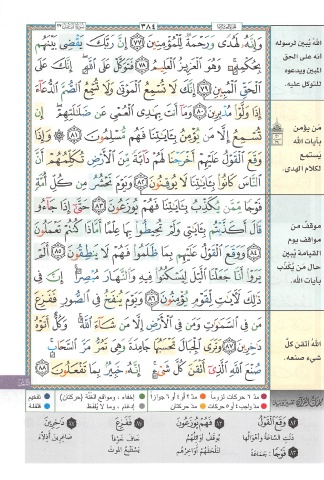 ٣٨٤
وَإِنَّهُ لَهُدًى وَرَحْمَةٌ لِّلْمُؤْمِنِينَ ٧٧ إِنَّ رَبَّكَ يَقْضِي بَيْنَهُم
بِحُكْمِهِ وَهُوَ الْعَزِيزُ الْعَلِيمُ ٧٨ فَتَوَكَّلْ عَلَى اللَّهِ إِنَّكَ عَلَى
الْحَقِّ الْمُبِينِ ٧٩ إِنَّكَ لَا تُسْمِعُ الْمَوْتَى وَلَا تُسْمِعُ الصُّمَّ الدُّعَاءَ
إِذَا وَلَّوْا مُدْبِرِينَ ٨٠ وَمَا أَنتَ بِهَادِي الْعُمْيِ عَن ضَلَالَتِهِمْ إِن
تُسْمِعُ إِلَّا مَن يُؤْمِنُ بِآيَاتِنَا فَهُم مُّسْلِمُونَ ٨١ وَإِذَا
وَقَعَ الْقَوْلُ عَلَيْهِمْ أَخْرَجْنَا لَهُمْ دَابَّةً مِّنَ الْأَرْضِ تُكَلِّمُهُمْ أَنَّ
النَّاسَ كَانُوا بِآيَاتِنَا لَا يُوقِنُونَ ٨٢ وَيَوْمَ نَحْشُرُ مِن كُلِّ أُمَّةٍ
فَوْجًا مِّمَّن يُكَذِّبُ بِآيَاتِنَا فَهُمْ يُوزَعُونَ ٨٣ حَتَّى إِذَا جَاءُو
قَالَ أَكَذَّبْتُم بِآيَاتِي وَلَمْ تُحِيطُوا بِهَا عِلْمًا أَمَّاذَا كُنتُمْ تَعْمَلُونَ
٨٤ وَوَقَعَ الْقَوْلُ عَلَيْهِم بِمَا ظَلَمُوا فَهُمْ لَا يَنطِقُونَ ٨٥ أَلَمْ
يَرَوْا أَنَّا جَعَلْنَا اللَّيْلَ لِيَسْكُنُوا فِيهِ وَالنَّهَارَ مُبْصِرًا إِنَّ فِي
ذَلِكَ لَآيَاتٍ لِّقَوْمٍ يُؤْمِنُونَ ٨٦ وَيَوْمَ يُنفَخُ فِي الصُّورِ فَفَزِعَ
مَن فِي السَّمَاوَاتِ وَمَن فِي الْأَرْضِ إِلَّا مَن شَاءَ اللَّهُ وَكُلٌّ أَتَوْهُ
دَاخِرِينَ ٨٧ وَتَرَى الْجِبَالَ تَحْسَبُهَا جَامِدَةً وَهِيَ تَمُرُّ مَرَّ السَّحَابِ
صُنْعَ اللَّهِ الَّذِي أَتْقَنَ كُلَّ شَيْءٍ إِنَّهُ خَبِيرٌ بِمَا تَفْعَلُونَ ٨٨
الله يُبين لرسوله
أنه على الحق
المبين ويدعوه
للتوكل عليه.
مَن يؤمن
بآيات الله
يستمع
لكلام الهدى.
موقف من
مواقف يوم
القيامة يُبين
حال مَن يكذب
بآيات الله.
الله أتقن كل
شيء صنعه.
مدّ ٦ حركات لزوماً
مدّ ٢ أو ٤ أو ٦ جوازاً
إخفاء، ومواقع الغُنَّة (حركتان)
تفخيم
مدّ واجب ٤ أو ٥ حركات
مدّ حركتان
إدغام، وما لا يُلفظ
قلقلة
وَقَعَ الْقَوْلُ
دَنَت السَّاعَةُ وَأَهْوَالُهَا
فَوْجًا: جَمَاعَةً
فَهُمْ يُوزَعُونَ
يُوقَفُ أَوَائِلُهُمْ
لِتَلْحَقَهُمْ أَوَاخِرُهُمْ
فَفَزِعَ
خَافَ خَوْفًا
يَسْتَتْبِعُ الْمَوْتَ
دَاخِرِينَ
صَاغِرِينَ أَذِلَّاءَ